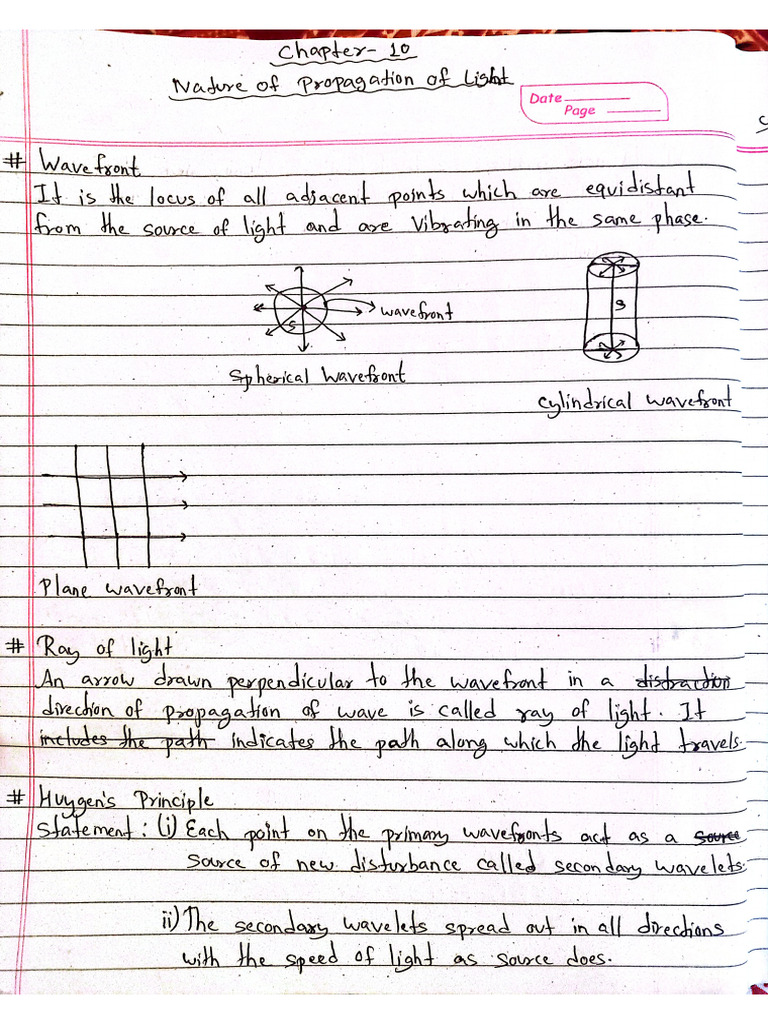 Chapter-10
Nature of Propagation of Light
Date
Page
# Wavefront
It is the locus of all adjacent points which are equidistant
from the source of light and are vibrating in the same phase.
S
wavefront
S
Spherical Wavefront
Cylindrical wavefront
Plane wavefront
# Ray of light
An arrow drawn perpendicular to the wavefront in a distraction
direction of propagation of wave is called ray of light. It
includes the path indicates the path along which the light travels.
# Huygen's Principle
Statement: (i) Each point on the primary wavefronts act as a source
source of new disturbance called secondary wavelets.
ii) The secondary wavelets spread out in all directions
with the speed of light as source does.